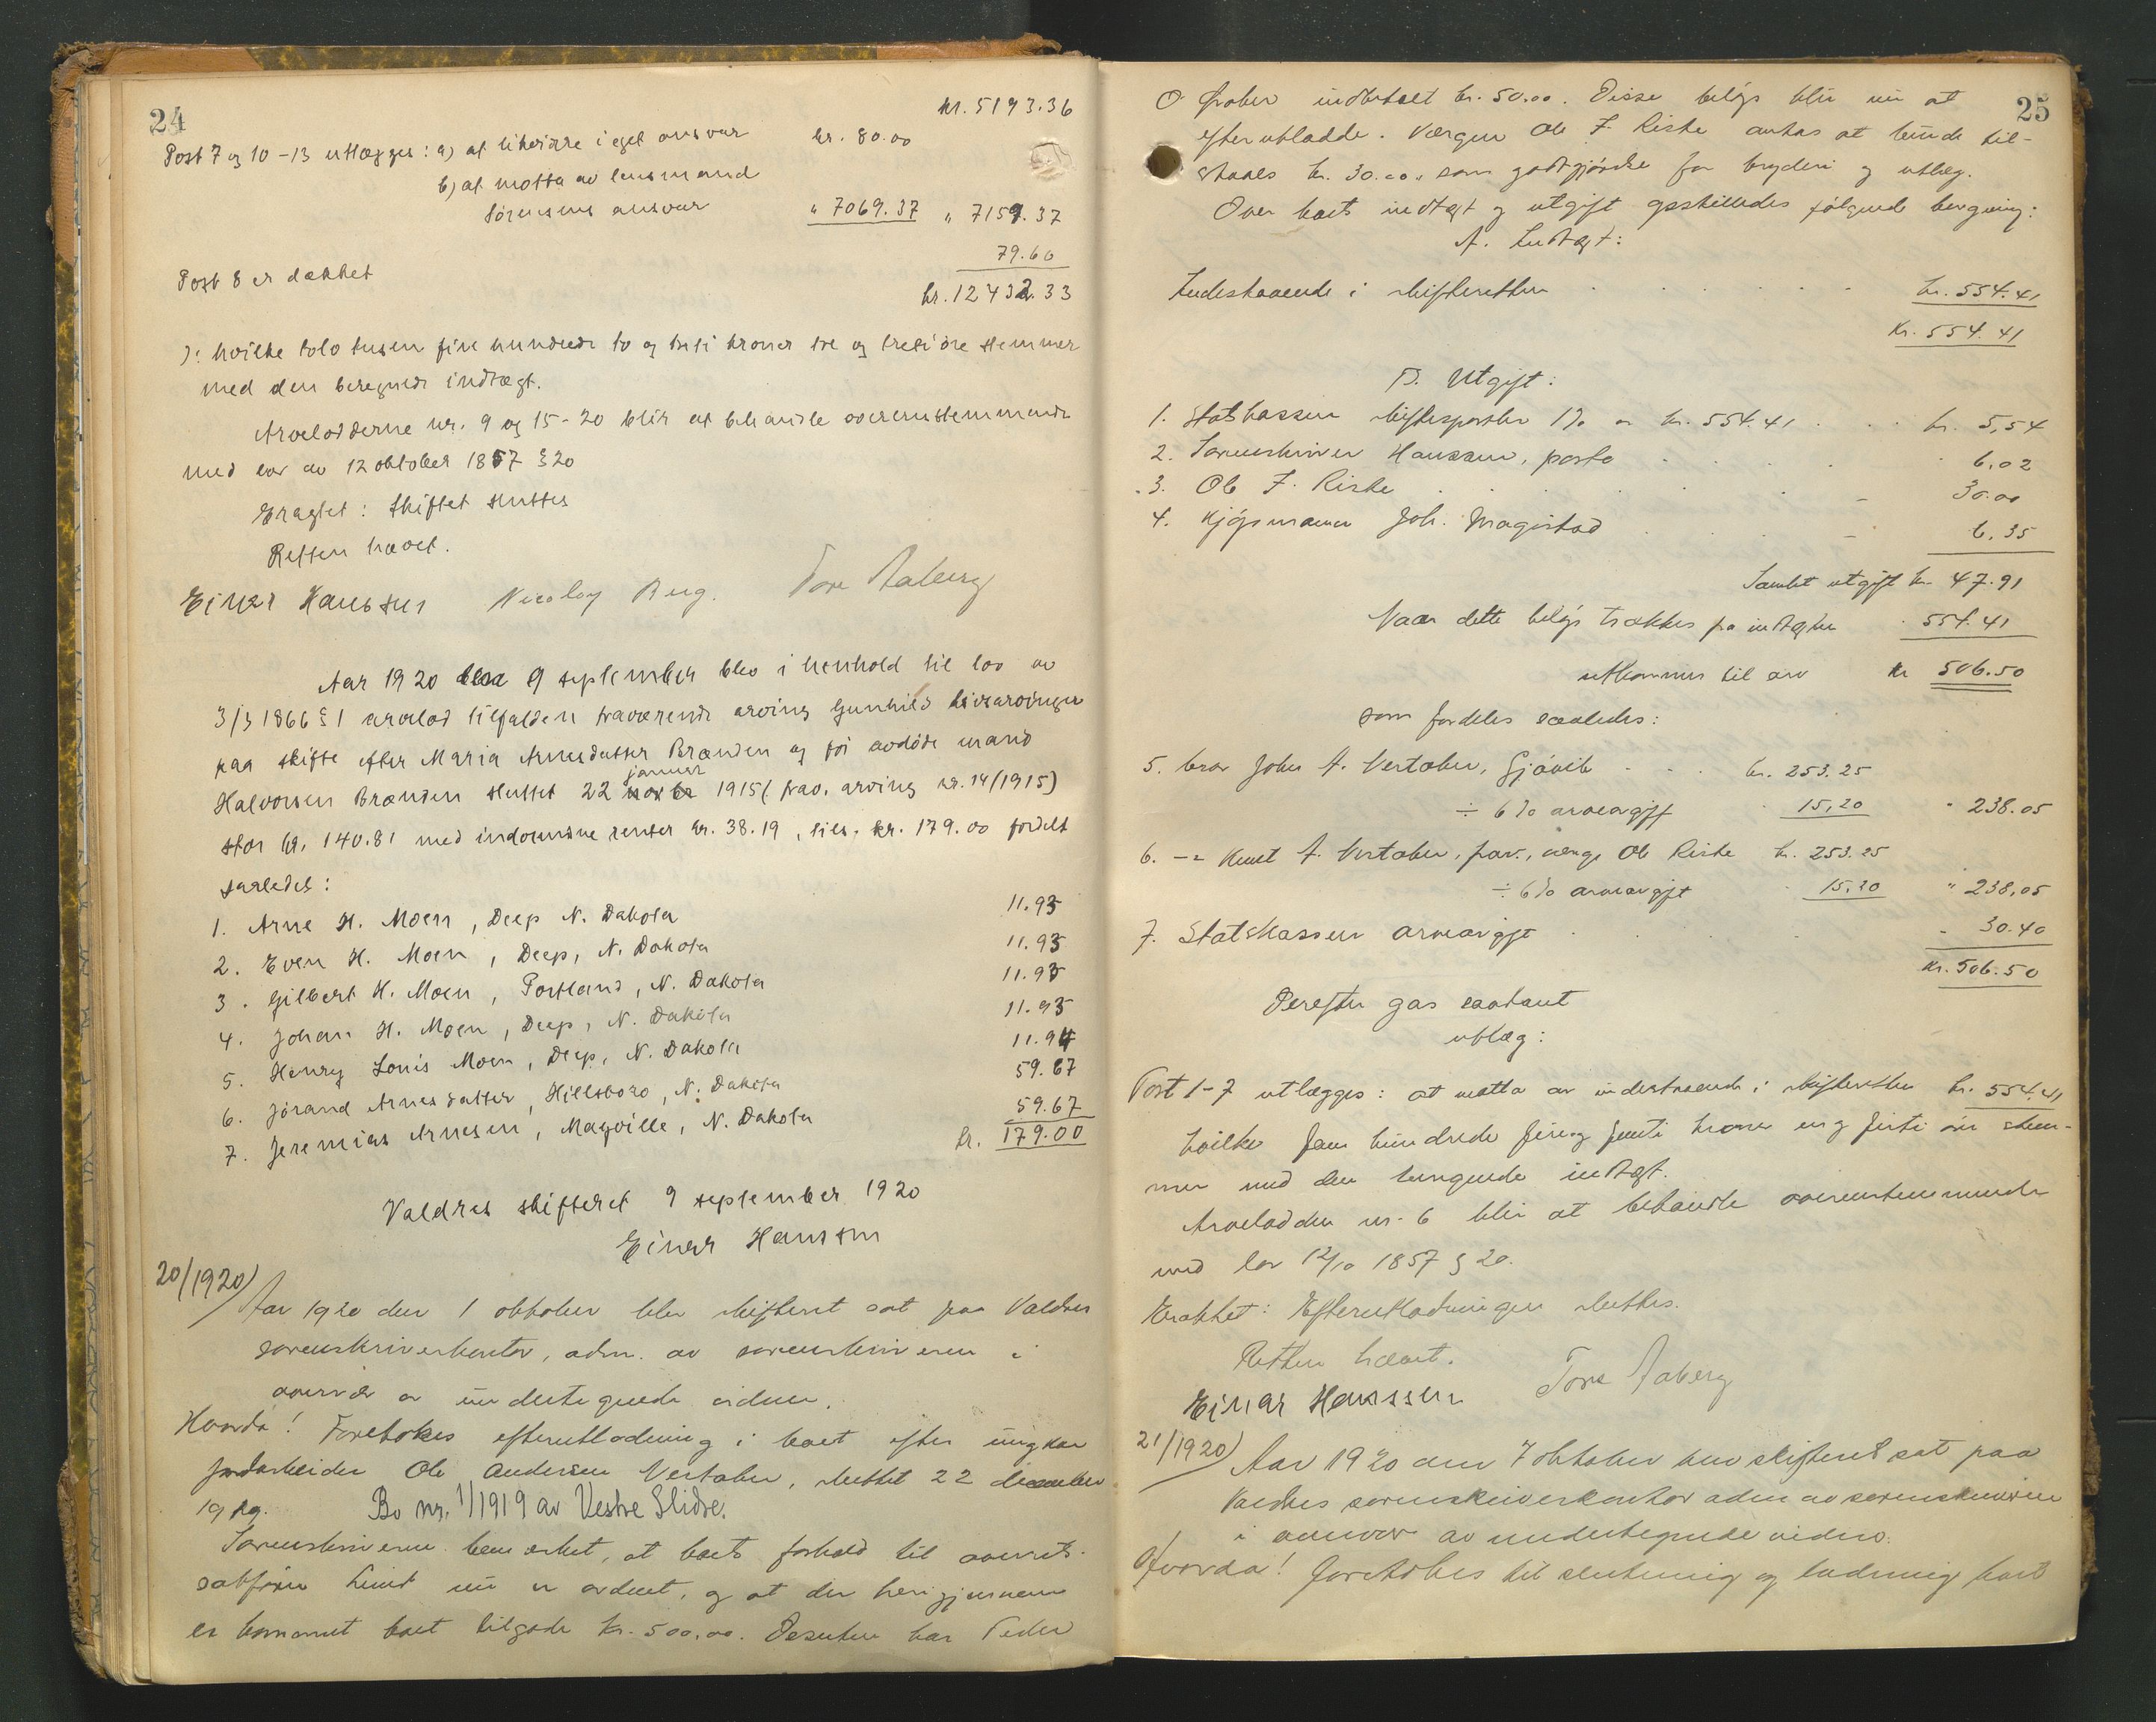 24
kr. 5193.36
Post 7 og 10-13 utlægges: a) at likvidere i eget ansvar kr. 80.00
b) at motta av lensmand
Sörensens ansvar " 7069.37 " 7159.37
79.60
Post 8 er dækket
kr. 12432.33
): hvilke tolv tusen fire hundrede to og treti kroner tre og treti öre stemmer
med den beregnede indtægt.
Arvelodderne nr. 9 og 15-20 blir at behandle overensstemmende
med lov av 12 oktober 1857 § 20
Eragtet: Skiftet sluttes
Retten hævet.
Einar Hanssen Nicolay Berg. Tore Aaberg
Aar 1920 den 9 september blev i henhold til lov av
3/3 1866 § 1 arvelod tilfalden fraværende arving Gunhild livsarvinger
paa skifte efter Maria Arnesdatter Brænden og för avdöde mand
Halvorsen Brænden sluttet 22 januar 1915 (frav. arving nr. 14/1915)
stor kr. 140.81 med indvundne renter kr. 38.19, tils. kr. 179.00 fordelt
saaledes:
1. Arne H. Moen, Deep N. Dakota 11.93
2. Even H. Moen, Deep, N. Dakota 11.93
3. Gilbert H. Moen, Portland, N. Dakota 11.93
4. Johan H. Moen, Deep, N. Dakota 11.93
5. Henry Louis Moen, Deep, N. Dakota 11.94
6. Jörand Arnesdatter, Hillsboro, N. Dakota 59.67
7. Jeremias Arnesen, Mayville, N. Dakota 59.67
kr. 179.00
Valdres skifteret 9 september 1920
Einar Hanssen
20/1920)
Aar 1920 den 1 oktober blev skifteret sat paa Valdres
sorenskriverkontor, adm. av sorenskriveren i
overvær av undertegnede vidner.
Hvorda! Foretokes efterutlodning i boet efter ungkar
jordarbeider Ole Andersen Vestaben, sluttet 22 december
1919. Bo nr. 1/1919 av Vestre Slidre.
Sorenskriveren bemerket, at boets forhold til overrets-
sakförer Lund nu er ordnet, og at der herigjennem
er kommet boet tilgode kr. 500.00. Desuten har Peder
25
O. Graber indbetalt kr. 50.00. Disse belöp blir nu at
efterutlodde. Værgen Ole F. Riske antas at burde til-
staaes kr. 30.00 som godtgjörelse for bryderi og utlæg.
Over boets indtægt og utgift opstilledes fölgende beregning:
A. Indtægt:
Indestaaende i skifteretten kr. 554.41
kr. 554.41
B. Utgift:
1. Statskassen skiftesportler 1% av kr. 554.41 kr. 5,54
2. Sorenskriver Hanssen, porto 6,02
3. Ole F. Riske 30.00
4. Kjöpmann Joh. Magistad 6,35
Samlet utgift kr. 47.91
Naar dette belöp trækkes fra indtægten 554.41
utkommer til arv kr 506.50
som fordeles saaledes:
5. bror John A. Vestaben, Gjövik kr. 253.25
÷ 6% arveavgift 15,20 " 238.05
6. -"- Knut A. Vestaben, frav., værge Ole Riske kr. 253.25
÷ 6% arveavgift 15,20 " 238,05
7. Statskassen arveavgift 30.40
kr. 506.50
Derefter gas saadant
utlæg:
Post 1-7 utlægges: at motta av indestaaende i skifteretten kr. 554,41
hvilke fem hundrede fire og femti kroner en og firti öre stem-
mer med den beregnede indtægt.
Arvelodden nr. 6 blir at behandle overensstemmende
med lov 12/10 1857 § 20.
Eraktet: Efterutlodningen sluttes.
Retten hævet.
Einar Hanssen Tore Aaberg
21/1920)
Aar 1920 den 7 oktober blev skifteret sat paa
Valdres sorenskriverkontor adm av sorenskriveren
i overvær av undertegnede vidner.
Hvorda! Foretokes til slutning og lodning boet